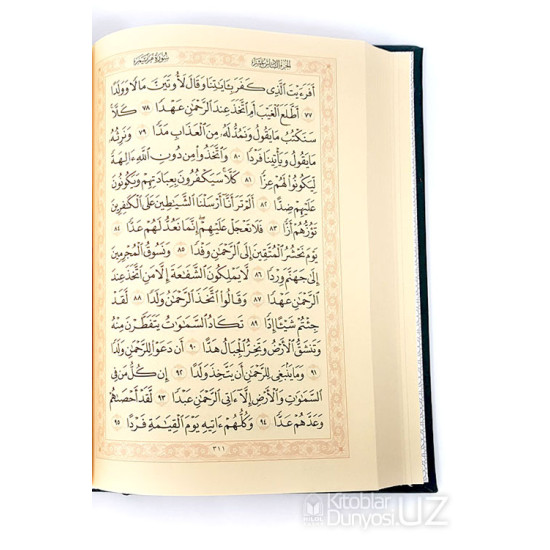 الجزء السادس عشر سورة مريم
أفرءيت الذي كفر بـٔايٰتنا وقال لأوتين مالا وولدا
٧٧ أطلع الغيب أم اتخذ عند الرحمٰن عهدا ٧٨ كلا
سنكتب ما يقول ونمد له من العذاب مدا ٧٩ ونرثه
ما يقول ويأتينا فردا ٨٠ واتخذوا من دون الله ءالهة
ليكونوا لهم عزا ٨١ كلا سيكفرون بعبادتهم ويكونون
عليهم ضدا ٨٢ ألم تر أنا أرسلنا الشيٰطين على الكٰفرين
تؤزهم أزا ٨٣ فلا تعجل عليهم إنما نعد لهم عدا ٨٤
يوم نحشر المتقين إلى الرحمٰن وفدا ٨٥ ونسوق المجرمين
إلى جهنم وردا ٨٦ لا يملكون الشفٰعة إلا من اتخذ عند
الرحمٰن عهدا ٨٧ وقالوا اتخذ الرحمٰن ولدا ٨٨ لقد
جئتم شيـٔا إدا ٨٩ تكاد السمٰوٰت يتفطرن منه
وتنشق الأرض وتخر الجبال هدا ٩٠ أن دعوا للرحمٰن ولدا
٩١ وما ينبغي للرحمٰن أن يتخذ ولدا ٩٢ إن كل من في
السمٰوٰت والأرض إلا ءاتي الرحمٰن عبدا ٩٣ لقد أحصىٰهم
وعدهم عدا ٩٤ وكلهم ءاتيه يوم القيٰمة فردا ٩٥
٣١١
HILOL
Kitoblar
Dunyosi.UZ